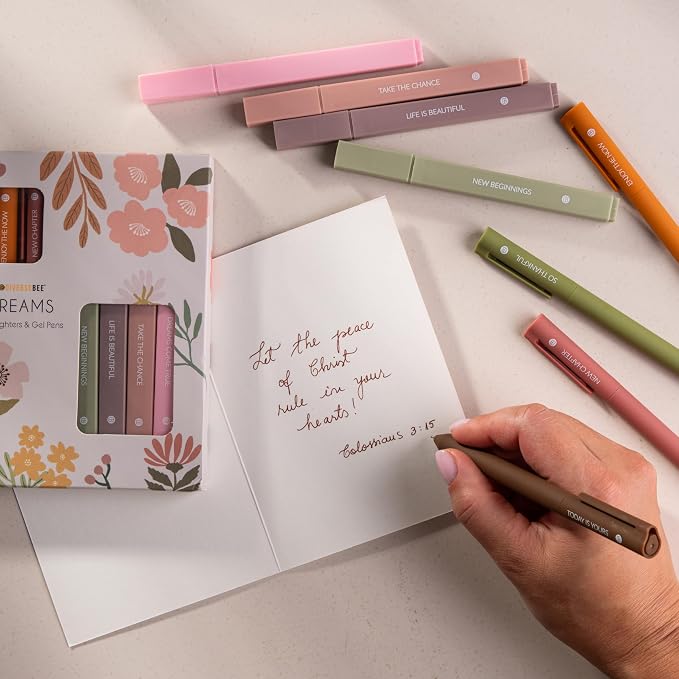 TAKE THE CHANCE
LIFE IS BEAUTIFUL
NEW BEGINNINGS
ENJOY THE NOW
SO THANKFUL
NEW CHAPTER
ENJOY THE NOW
NEW CHAPTER
DIVERSEBEE™
REAMS
ghters & Gel Pens
NEW BEGINNINGS
LIFE IS BEAUTIFUL
TAKE THE CHANCE
COME TRUE
Let the peace
of Christ
rule in your
hearts!
Colossians 3:15
TODAY IS YOURS